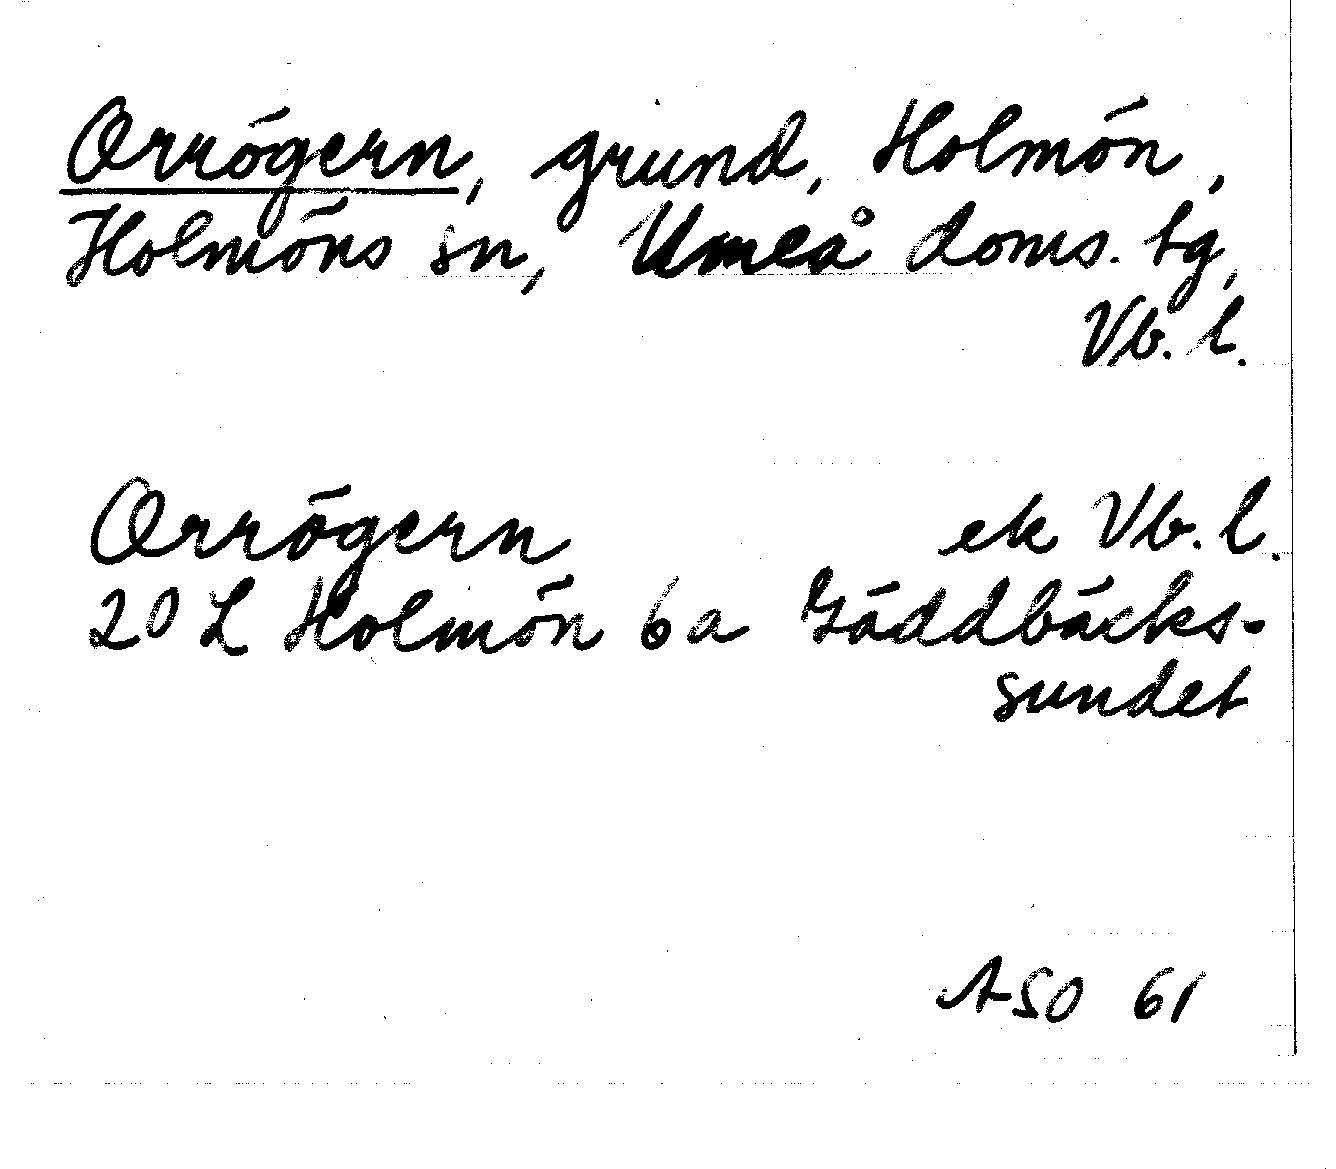 Orrögern, grund, Holmön,
Holmöns sn, Umeå doms. tg,
Vb. l.
Orrögern ek Vb. l.
20 L Holmön 6 a Gäddbäcks-
sundet
ASO 61